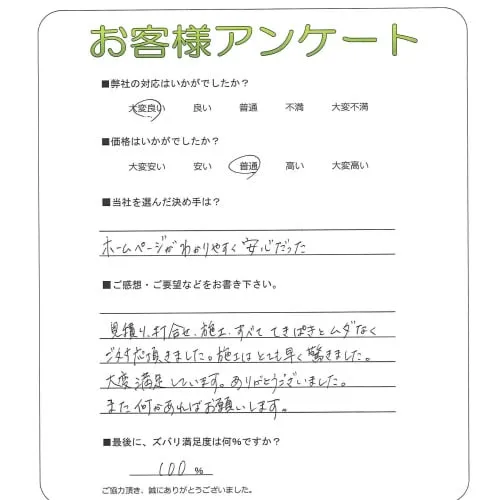 お客様アンケート
■弊社の対応はいかがでしたか？
大変良い 良い 普通 不満 大変不満
■価格はいかがでしたか？
大変安い 安い 普通 高い 大変高い
■当社を選んだ決め手は？
ホームページがわかりやすく安心だった
■ご感想・ご要望などをお書き下さい。
見積り、打合せ、施工、すべて てきぱきとムダなく
ご対応頂きました。施工はとても早く驚きました。
大変満足しています。ありがとうございました。
また何かあればお願いします。
■最後に、ズバリ満足度は何%ですか？
100 %
ご協力頂き、誠にありがとうございました。